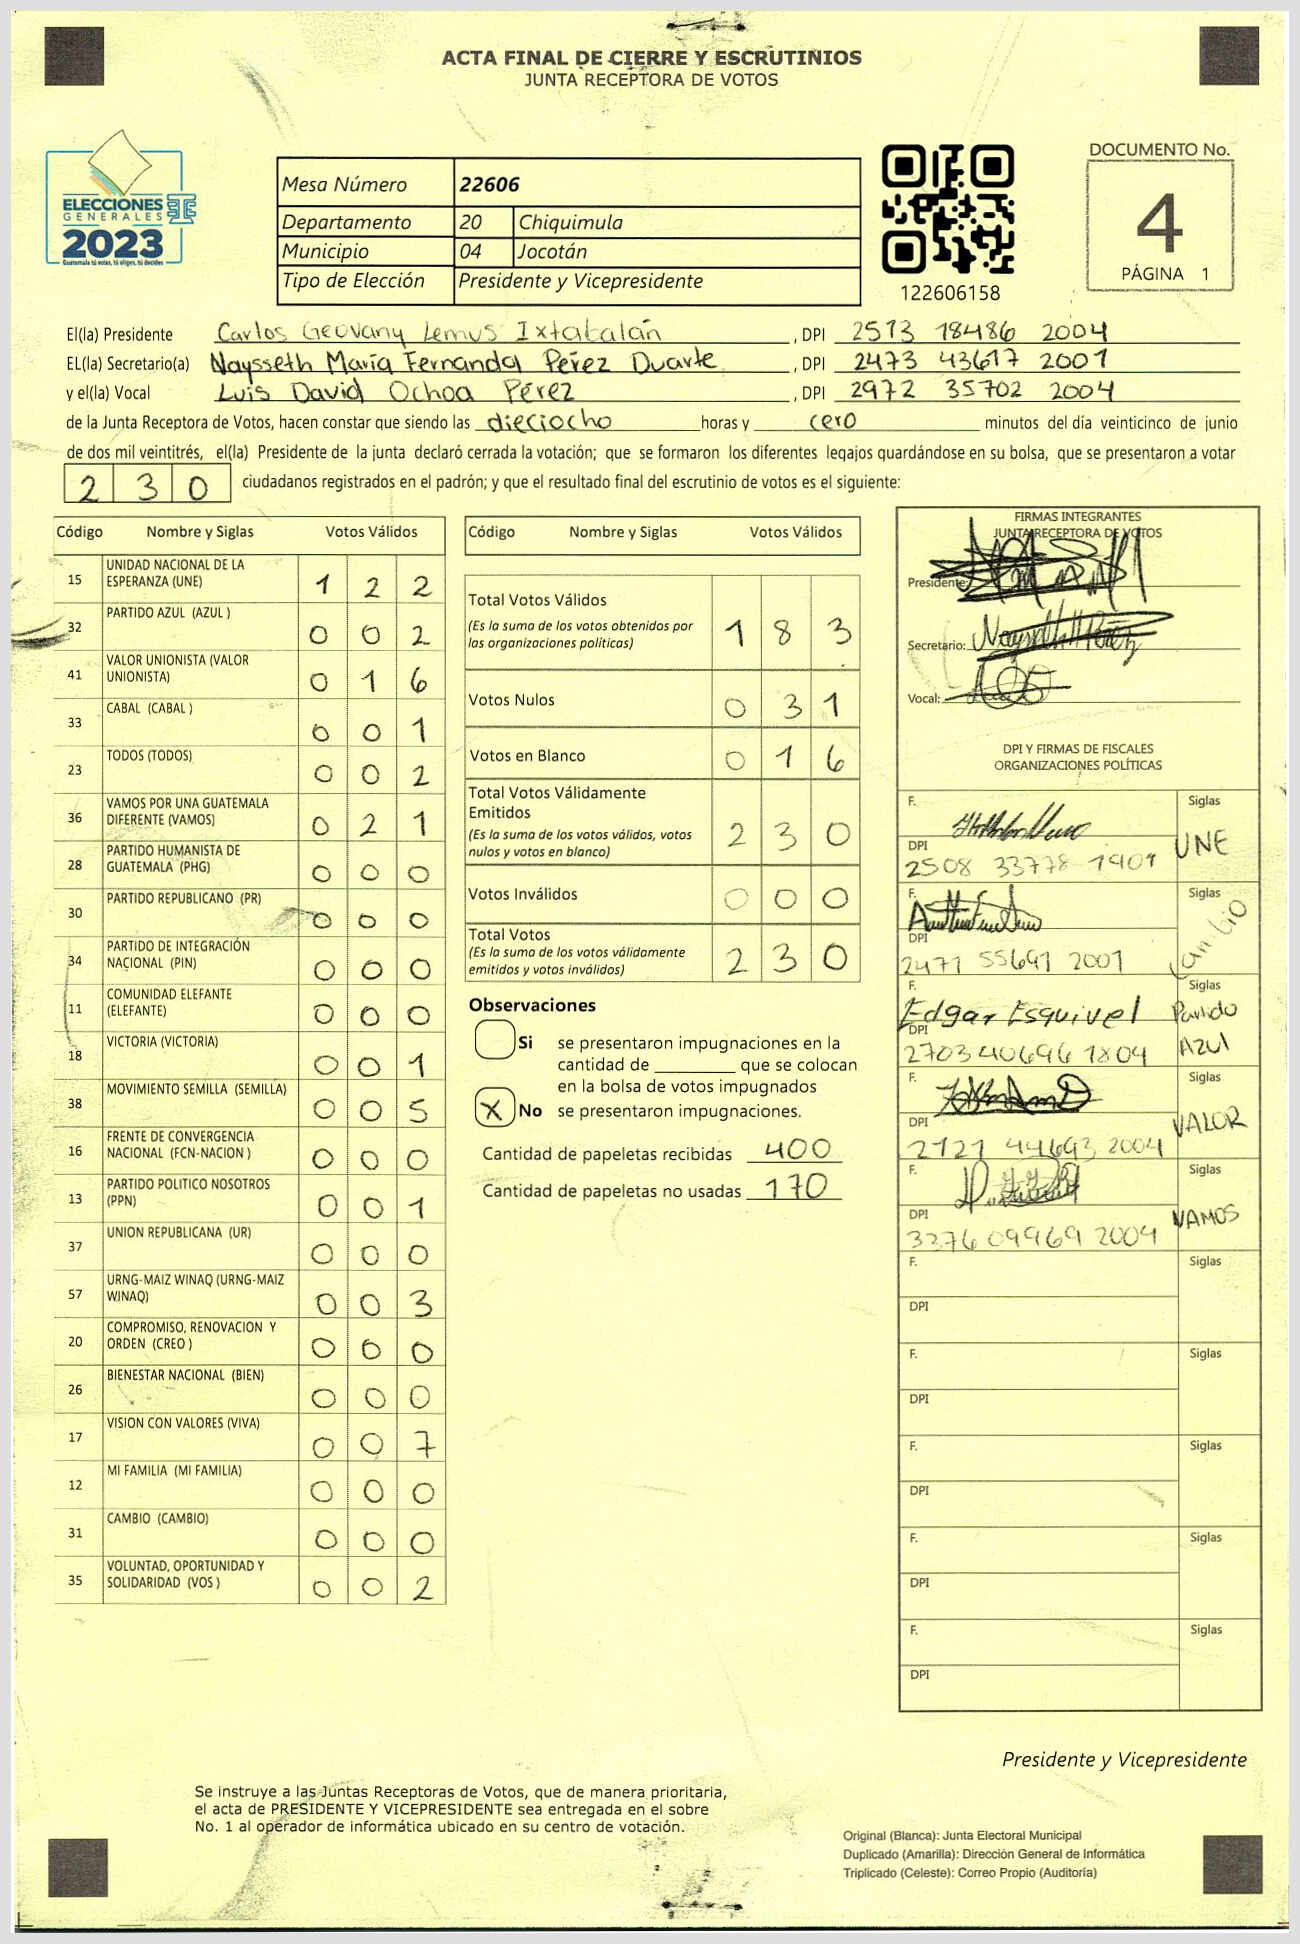 ACTA FINAL DE CIERRE Y ESCRUTINIOS
JUNTA RECEPTORA DE VOTOS
ELECCIONES
GENERALES
2023
Guatemala tú votas, tú eliges, tú decides
Mesa Número 22606
Departamento 20 Chiquimula
Municipio 04 Jocotán
Tipo de Elección Presidente y Vicepresidente
122606158
DOCUMENTO No.
4
PÁGINA 1
El(la) Presidente Carlos Geovany Lemus Ixtabalán , DPI 2513 18486 2004
EL(la) Secretario(a) Naysseth María Fernanda Pérez Duarte , DPI 2473 43617 2001
y el(la) Vocal Luis David Ochoa Pérez , DPI 2972 35702 2004
de la Junta Receptora de Votos, hacen constar que siendo las dieciocho horas y cero minutos del día veinticinco de junio
de dos mil veintitrés, el(la) Presidente de la junta declaró cerrada la votación; que se formaron los diferentes legajos quardándose en su bolsa, que se presentaron a votar
2 3 0 ciudadanos registrados en el padrón; y que el resultado final del escrutinio de votos es el siguiente:
Código Nombre y Siglas Votos Válidos
15 UNIDAD NACIONAL DE LA ESPERANZA (UNE) 1 2 2
32 PARTIDO AZUL (AZUL ) 0 0 2
41 VALOR UNIONISTA (VALOR UNIONISTA) 0 1 6
33 CABAL (CABAL ) 0 0 1
23 TODOS (TODOS) 0 0 2
36 VAMOS POR UNA GUATEMALA DIFERENTE (VAMOS) 0 2 1
28 PARTIDO HUMANISTA DE GUATEMALA (PHG) 0 0 0
30 PARTIDO REPUBLICANO (PR) 0 0 0
34 PARTIDO DE INTEGRACIÓN NACIONAL (PIN) 0 0 0
11 COMUNIDAD ELEFANTE (ELEFANTE) 0 0 0
18 VICTORIA (VICTORIA) 0 0 1
38 MOVIMIENTO SEMILLA (SEMILLA) 0 0 5
16 FRENTE DE CONVERGENCIA NACIONAL (FCN-NACION ) 0 0 0
13 PARTIDO POLITICO NOSOTROS (PPN) 0 0 1
37 UNION REPUBLICANA (UR) 0 0 0
57 URNG-MAIZ WINAQ (URNG-MAIZ WINAQ) 0 0 3
20 COMPROMISO, RENOVACION Y ORDEN (CREO ) 0 0 0
26 BIENESTAR NACIONAL (BIEN) 0 0 0
17 VISION CON VALORES (VIVA) 0 0 7
12 MI FAMILIA (MI FAMILIA) 0 0 0
31 CAMBIO (CAMBIO) 0 0 0
35 VOLUNTAD, OPORTUNIDAD Y SOLIDARIDAD (VOS ) 0 0 2
Código Nombre y Siglas Votos Válidos
Total Votos Válidos 1 8 3
(Es la suma de los votos obtenidos por
las organizaciones políticas)
Votos Nulos 0 3 1
Votos en Blanco 0 1 6
Total Votos Válidamente
Emitidos 2 3 0
(Es la suma de los votos válidos, votos
nulos y votos en blanco)
Votos Inválidos 0 0 0
Total Votos 2 3 0
(Es la suma de los votos válidamente
emitidos y votos inválidos)
Observaciones
Si se presentaron impugnaciones en la
cantidad de que se colocan
en la bolsa de votos impugnados
X No se presentaron impugnaciones.
Cantidad de papeletas recibidas 400
Cantidad de papeletas no usadas 170
FIRMAS INTEGRANTES
JUNTA RECEPTORA DE VOTOS
Presidente:
Secretario:
Vocal:
DPI Y FIRMAS DE FISCALES
ORGANIZACIONES POLÍTICAS
F. Siglas
UNE
DPI
2508 33778 1901
F. Siglas
DPI
2471 55691 2001
F. Siglas
Edgar Esquivel Partido
DPI
2703 40696 1804 Azul
F. Siglas
DPI VALOR
2121 44693 2004
F. Siglas
DPI VAMOS
3376 09969 2004
F. Siglas
DPI
F. Siglas
DPI
F. Siglas
DPI
F. Siglas
DPI
F. Siglas
DPI
Presidente y Vicepresidente
Se instruye a las Juntas Receptoras de Votos, que de manera prioritaria,
el acta de PRESIDENTE Y VICEPRESIDENTE sea entregada en el sobre
No. 1 al operador de informática ubicado en su centro de votación.
Original (Blanca): Junta Electoral Municipal
Duplicado (Amarilla): Dirección General de Informática
Triplicado (Celeste): Correo Propio (Auditoría)